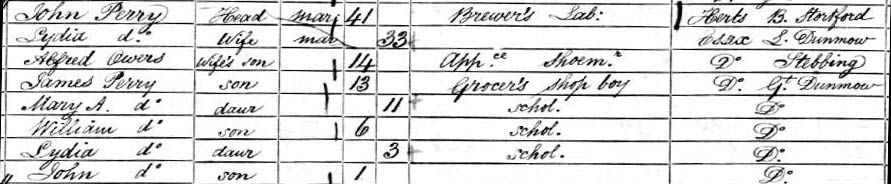 John Perry Head mar 41 Brewer's Lab: Herts B. Stortford
Lydia do Wife mar 33 Essex L. Dunmow
Alfred Owers Wife's son 14 App.ce Shoem.r Do Stebbing
James Perry son 13 Grocer's shop boy Do Gt. Dunmow
Mary A. do daur 11 schol. Do
William do son 6 schol. Do
Lydia do daur 3 schol. Do
" John do son 1 Do